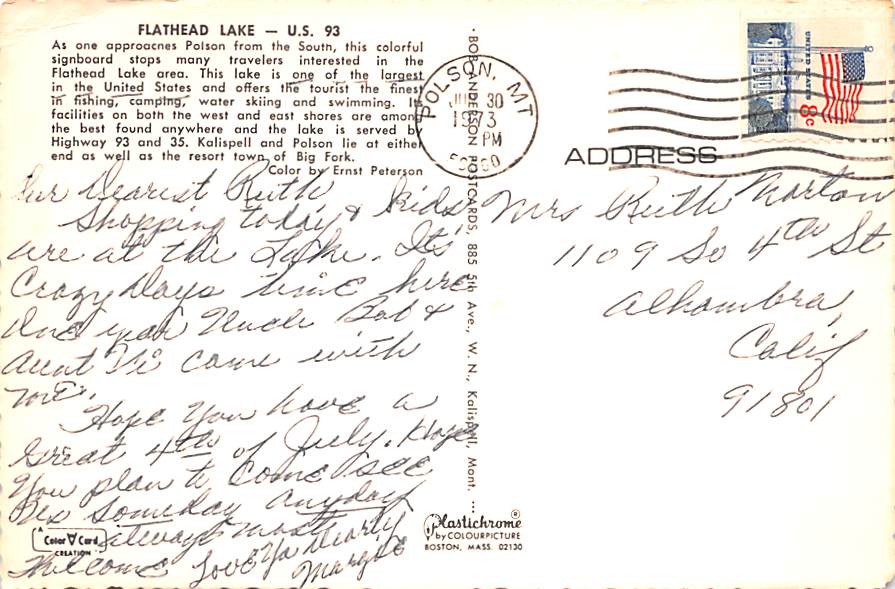 FLATHEAD LAKE — U.S. 93
As one approaches Polson from the South, this colorful
signboard stops many travelers interested in the
Flathead Lake area. This lake is one of the largest
in the United States and offers the tourist the finest
in fishing, camping, water skiing and swimming. Its
facilities on both the west and east shores are among
the best found anywhere and the lake is served by
Highway 93 and 35. Kalispell and Polson lie at either
end as well as the resort town of Big Fork.
Color by Ernst Peterson
Our Dearest Ruth
Shopping today & kids
are at the Lake. Its
Crazy Days time here
One year Uncle Bob &
Aunt Vi came with
me.
Hope You have a
Great 4th of July. Hope
You plan to come see
us someday anyday
always most
Welcome Love Ya Dearly
Margie
A Color Card CREATION
BOB ANDERSON POSTCARDS, 885 5th Ave., W. N., Kalispell, Mont.
Plastichrome®
by COLOURPICTURE
BOSTON, MASS. 02130
POLSON, MT
30
1973
PM
UNITED STATES
8c
ADDRESS
Mrs Ruth Morton
1109 So 4th St
Alhambra,
Calif
91801